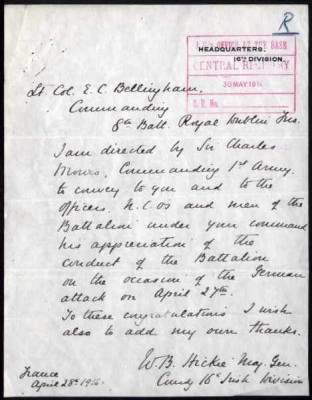 R
HEADQUARTERS.
16TH DIVISION.
A.G's OFFICE AT THE BASE
CENTRAL REGISTRY
30 MAY 1916
C.R. No.
Lt. Col. E. C. Bellingham,
Commanding
8th Batt. Royal Dublin Fus.
I am directed by Sir Charles
Monro, Commanding 1st Army.
to convey to you and to the
officers, N.C.Os and men of the
Battalion under your command
his appreciation of the
conduct of the Battalion
on the occasion of the German
attack on April 27th.
To these congratulations I wish
also to add my own thanks.
W.B. Hickie Maj. Gen.
Comdg 16th Irish Division
France
April 28th 1916.